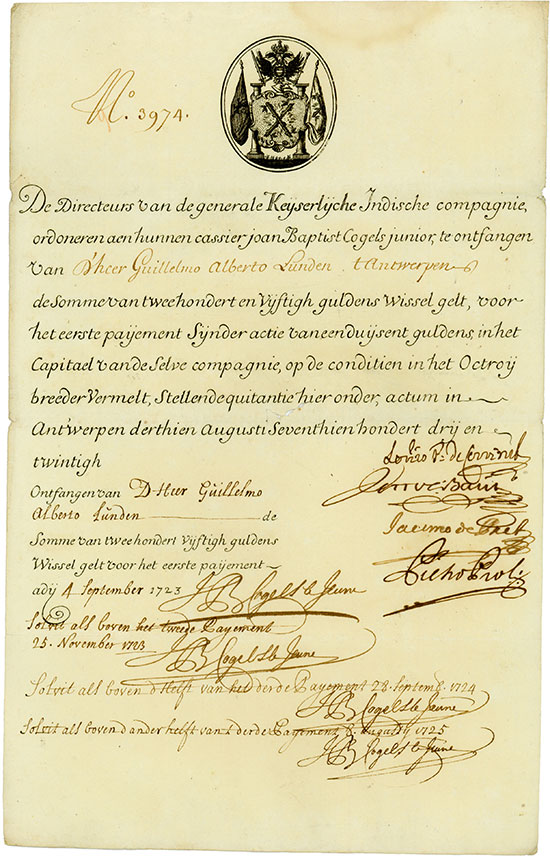 No. 3974.
De Directeurs van de generale Keyserlijche Indische compagnie,
ordoneren aen hunnen cassier joan Baptist Cogels junior, te ontfangen
van D'heer Guillelmo Alberto Lunden t'Antwerpen
de Somme van tweehondert en Vijftigh guldens Wissel gelt, voor
het eerste paijement Sijnder actie van eenduijsent guldens, in het
Capitael van de Selve compagnie, op de conditien in het Octroij
breeder Vermelt, Stellende quitantie hier onder, actum in
Antwerpen derthien Augusti Seventhien hondert drij en
twintigh
Ontfangen van D'Heer Guillelmo
Alberto Lunden de
Somme van tweehondert Vijftigh guldens
Wissel gelt voor het eerste paijement
adij 4 September 1723 JB Cogels le Jeune
Jacomo de Pret
Solvit als boven het tweede Payement
25. November 1723
JB Cogels le Jeune
Solvit als boven d'Helft van het derde Payement 28 Septemb. 1724
JB Cogels le Jeune
Solvit als boven d'ander helft van t derde Payement 8 Augusty 1725
JB Cogels le Jeune